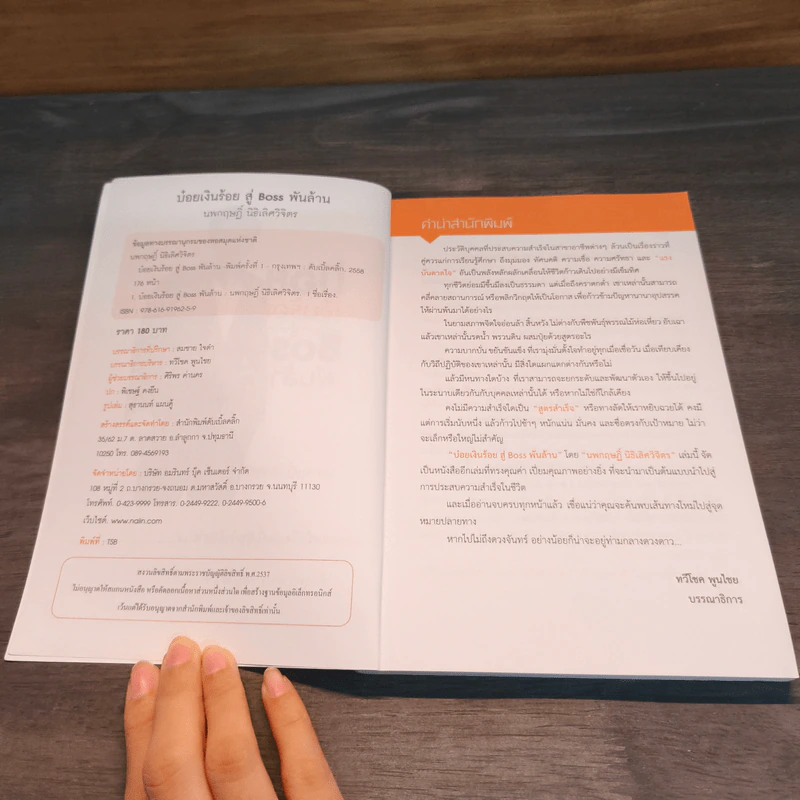 บ๋อยเงินร้อย สู่ Boss พันล้าน
นพกฤษฏิ์ นิธิเลิศวิจิตร
ข้อมูลทางบรรณานุกรมของหอสมุดแห่งชาติ
นพกฤษฏิ์ นิธิเลิศวิจิตร
บ๋อยเงินร้อย สู่ Boss พันล้าน.-พิมพ์ครั้งที่ 1.- กรุงเทพฯ : ดับเบิ้ลคลิ๊ก, 2558
176 หน้า
1. บ๋อยเงินร้อย สู่ Boss พันล้าน. : นพกฤษฏิ์ นิธิเลิศวิจิตร. : 1 ชื่อเรื่อง.
ISBN : 978-616-91962-5-9
ราคา 180 บาท
บรรณาธิการที่ปรึกษา : สมชาย ใจดำ
บรรณาธิการบริหาร : ทวีโชค พูนไชย
ผู้ช่วยบรรณาธิการ : ศิริพร ค่านคร
ปก : พิเชษฐ์ คงยืน
รูปเล่ม : สุธานนท์ แผนคู้
สร้างสรรค์และจัดทำโดย : สำนักพิมพ์ดับเบิ้ลคลิ๊ก
35/62 ม.7 ต. ลาดสวาย อ.ลำลูกกา จ.ปทุมธานี
10260 โทร. 089-4569193
จัดจำหน่ายโดย : บริษัท อมรินทร์ บุ๊ค เซ็นเตอร์ จำกัด
108 หมู่ที่ 2 ถ.บางกรวย-จงถนอม ต.มหาสวัสดิ์ อ.บางกรวย จ.นนทบุรี 11130
โทรศัพท์. 0-423-9999 โทรสาร. 0-2449-9222, 0-2449-9500-6
เว็บไซต์. www.naiin.com
พิมพ์ที่ : TSB
สงวนลิขสิทธิ์ตามพระราชบัญญัติลิขสิทธิ์ พ.ศ.2537
ไม่อนุญาตให้สแกนหนังสือ หรือคัดลอกเนื้อหาส่วนหนึ่งส่วนใด เพื่อสร้างฐานข้อมูลอิเล็กทรอนิกส์
เว้นแต่ได้รับอนุญาตจากสำนักพิมพ์และเจ้าของลิขสิทธิ์เท่านั้น
คำนำสำนักพิมพ์
ประวัติบุคคลที่ประสบความสำเร็จในสาขาอาชีพต่างๆ ล้วนเป็นเรื่องราวที่
คู่ควรแก่การเรียนรู้ศึกษา ถึงมุมมอง ทัศนคติ ความเชื่อ ความศรัทธา และ "แรง
บันดาลใจ" อันเป็นพลังหลักผลักเคลื่อนให้ชีวิตก้าวเดินไปอย่างมีเข็มทิศ
ทุกชีวิตย่อมมีขึ้นมีลงเป็นธรรมดา แต่เมื่อถึงคราตกต่ำ เขาเหล่านั้นสามารถ
คลี่คลายสถานการณ์ หรือพลิกวิกฤตให้เป็นโอกาส เพื่อก้าวข้ามปัญหานานาอุปสรรค
ให้ผ่านพ้นมาได้อย่างไร
ในยามสภาพจิตใจอ่อนล้า สิ้นหวัง ไม่ต่างกับพืชพันธุ์พรรณไม้ห่อเหี่ยว อับเฉา
แล้วเขาเหล่านั้นรดน้ำ พรวนดิน ผสมปุ๋ยด้วยสูตรอะไร
ความบากบั่น ขยันขันแข็ง ที่เรามุ่งมั่นตั้งใจทำอยู่ทุกเมื่อเชื่อวัน เมื่อเทียบเคียง
กับวิถีปฏิบัติของเขาเหล่านั้น มีสิ่งใดแผกแตกต่างกันหรือไม่
แล้วมีหนทางใดบ้าง ที่เราสามารถจะยกระดับและพัฒนาตัวเอง ให้ขึ้นไปอยู่
ในระนาบเดียวกันกับบุคคลเหล่านั้นได้ หรือหากไม่ใช่ก็ใกล้เคียง
คงไม่มีความสำเร็จใดเป็น "สูตรสำเร็จ" หรือทางลัดให้เราหยิบฉวยได้ คงมี
แต่การเริ่มนับหนึ่ง แล้วก้าวไปช้าๆ หนักแน่น มั่นคง และซื่อตรงกับเป้าหมาย ไม่ว่า
จะเล็กหรือใหญ่ไม่สำคัญ
"บ๋อยเงินร้อย สู่ Boss พันล้าน" โดย "นพกฤษฏิ์ นิธิเลิศวิจิตร" เล่มนี้ จัด
เป็นหนังสืออีกเล่มที่ทรงคุณค่า เปี่ยมคุณภาพอย่างยิ่ง ที่จะนำมาเป็นต้นแบบนำไปสู่
การประสบความสำเร็จในชีวิต
และเมื่ออ่านจบครบทุกหน้าแล้ว เชื่อแน่ว่าคุณจะค้นพบเส้นทางใหม่ไปสู่จุด
หมายปลายทาง
หากไปไม่ถึงดวงจันทร์ อย่างน้อยก็น่าจะอยู่ท่ามกลางดวงดาว...
ทวีโชค พูนไชย
บรรณาธิการ